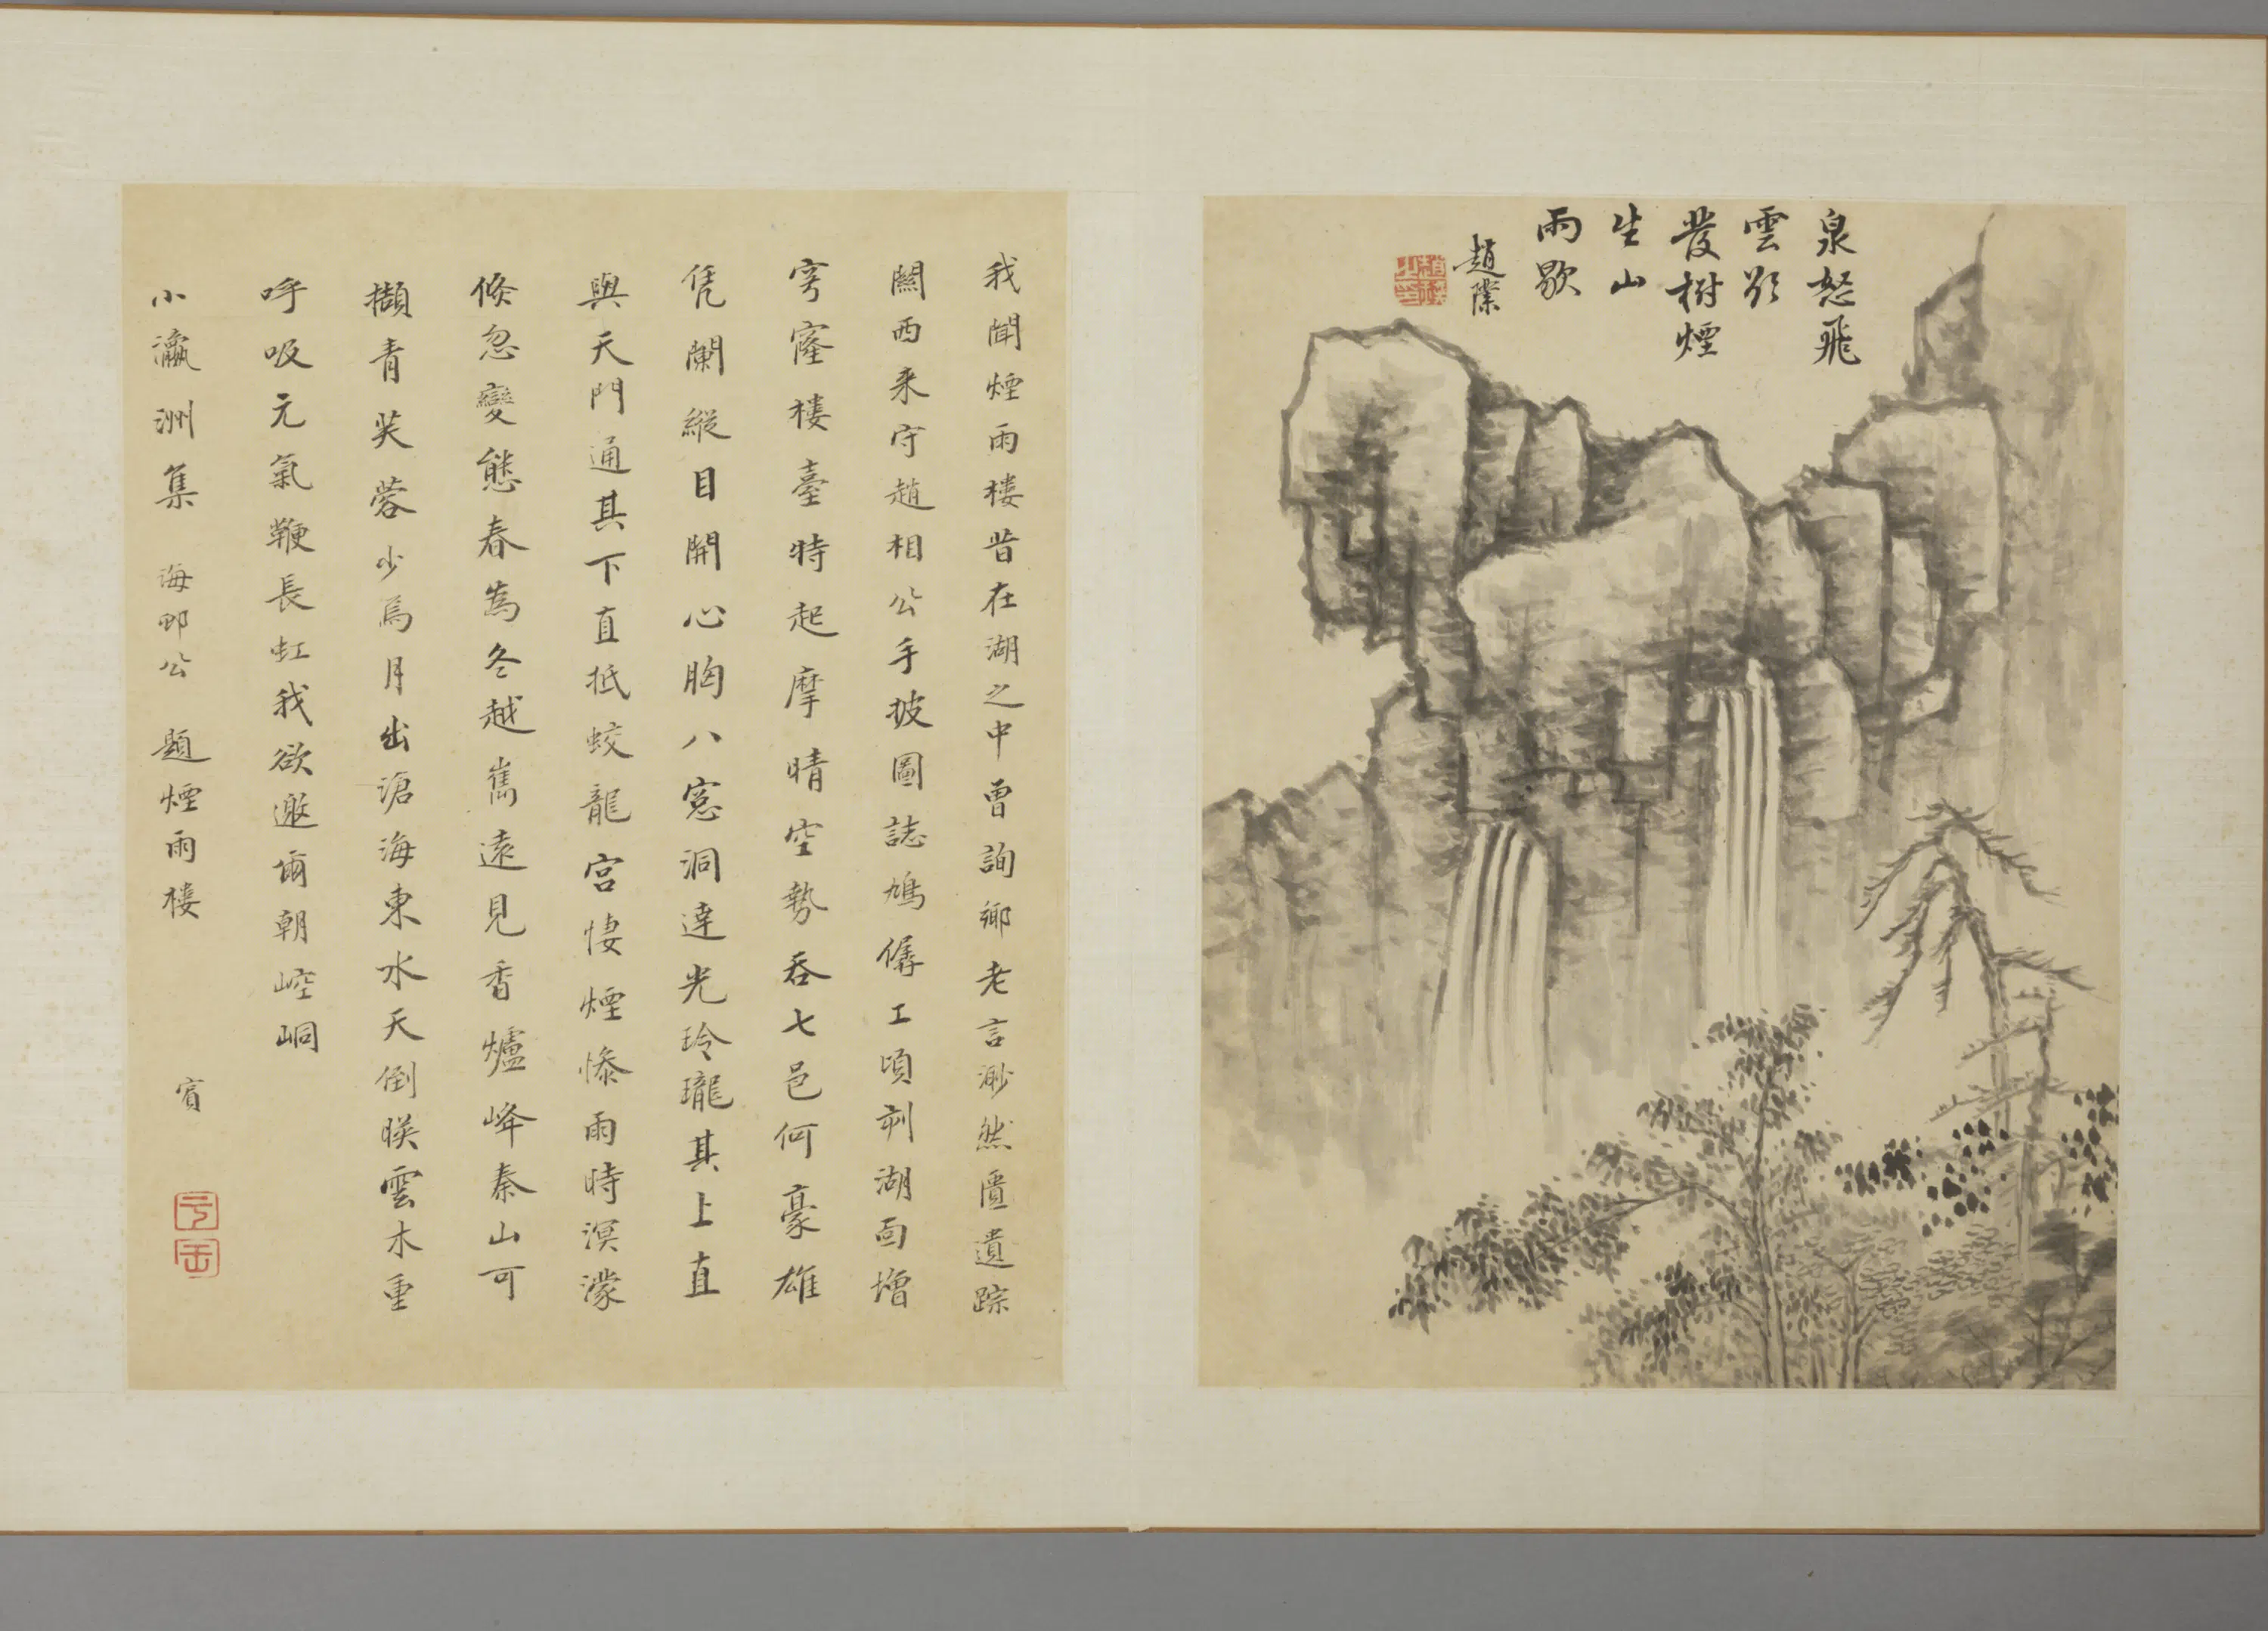 泉怒飛
雲影
發樹煙
生山
雨歇
趙濼
我聞煙雨樓昔在湖之中曾詢鄉老言渺然匱遺踪
關西來守趙相公手披圖誌鳩僝工頃刻湖面增
穹窿樓臺特起摩晴空勢吞七邑何豪雄
凭闌縱目開心胸八窓洞達光玲瓏其上直
與天門通其下直抵蛟龍宮悽煙慘雨時溟濛
倏忽變態春為冬越嶲遠見香爐峰秦山可
擷青芙蓉少焉月出滄海東水天倒暎雲木重
呼吸元氣鞭長虹我欲邀爾朝崆峒
小瀛洲集 海鄞公 題煙雨樓
賓